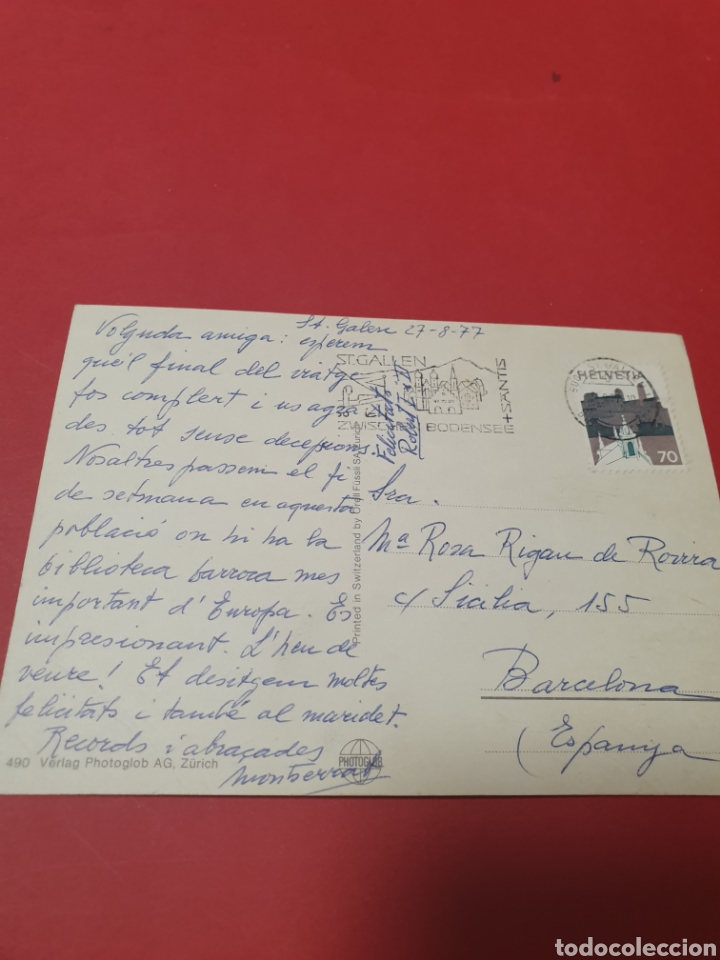 St. Galen 27-8-77
Volguda amiga: esperem
que'l final del viatge
fos complert i us agra
des tot sense decepció
Nosaltres passem el fi
de setmana en aquesta
població on hi ha la
biblioteca barroca mes
important d'Europa. Es
impresionant. L'heu de
veure! Et desitgem moltes
felicitats i també al maridet.
Records i abraçades
Montserrat
Felicitats
Robert
490 Verlag Photoglob AG, Zürich
PHOTOGLOB
Printed in Switzerland by Orell Füssli SA Zurich
ST.GALLEN
ZWISCHEN BODENSEE
+ SÄNTIS
HELVETIA
70
Sra.
Mª Rosa Rigau de Rovira
c/ Sicilia, 155
Barcelona
(Espanya
todocoleccion